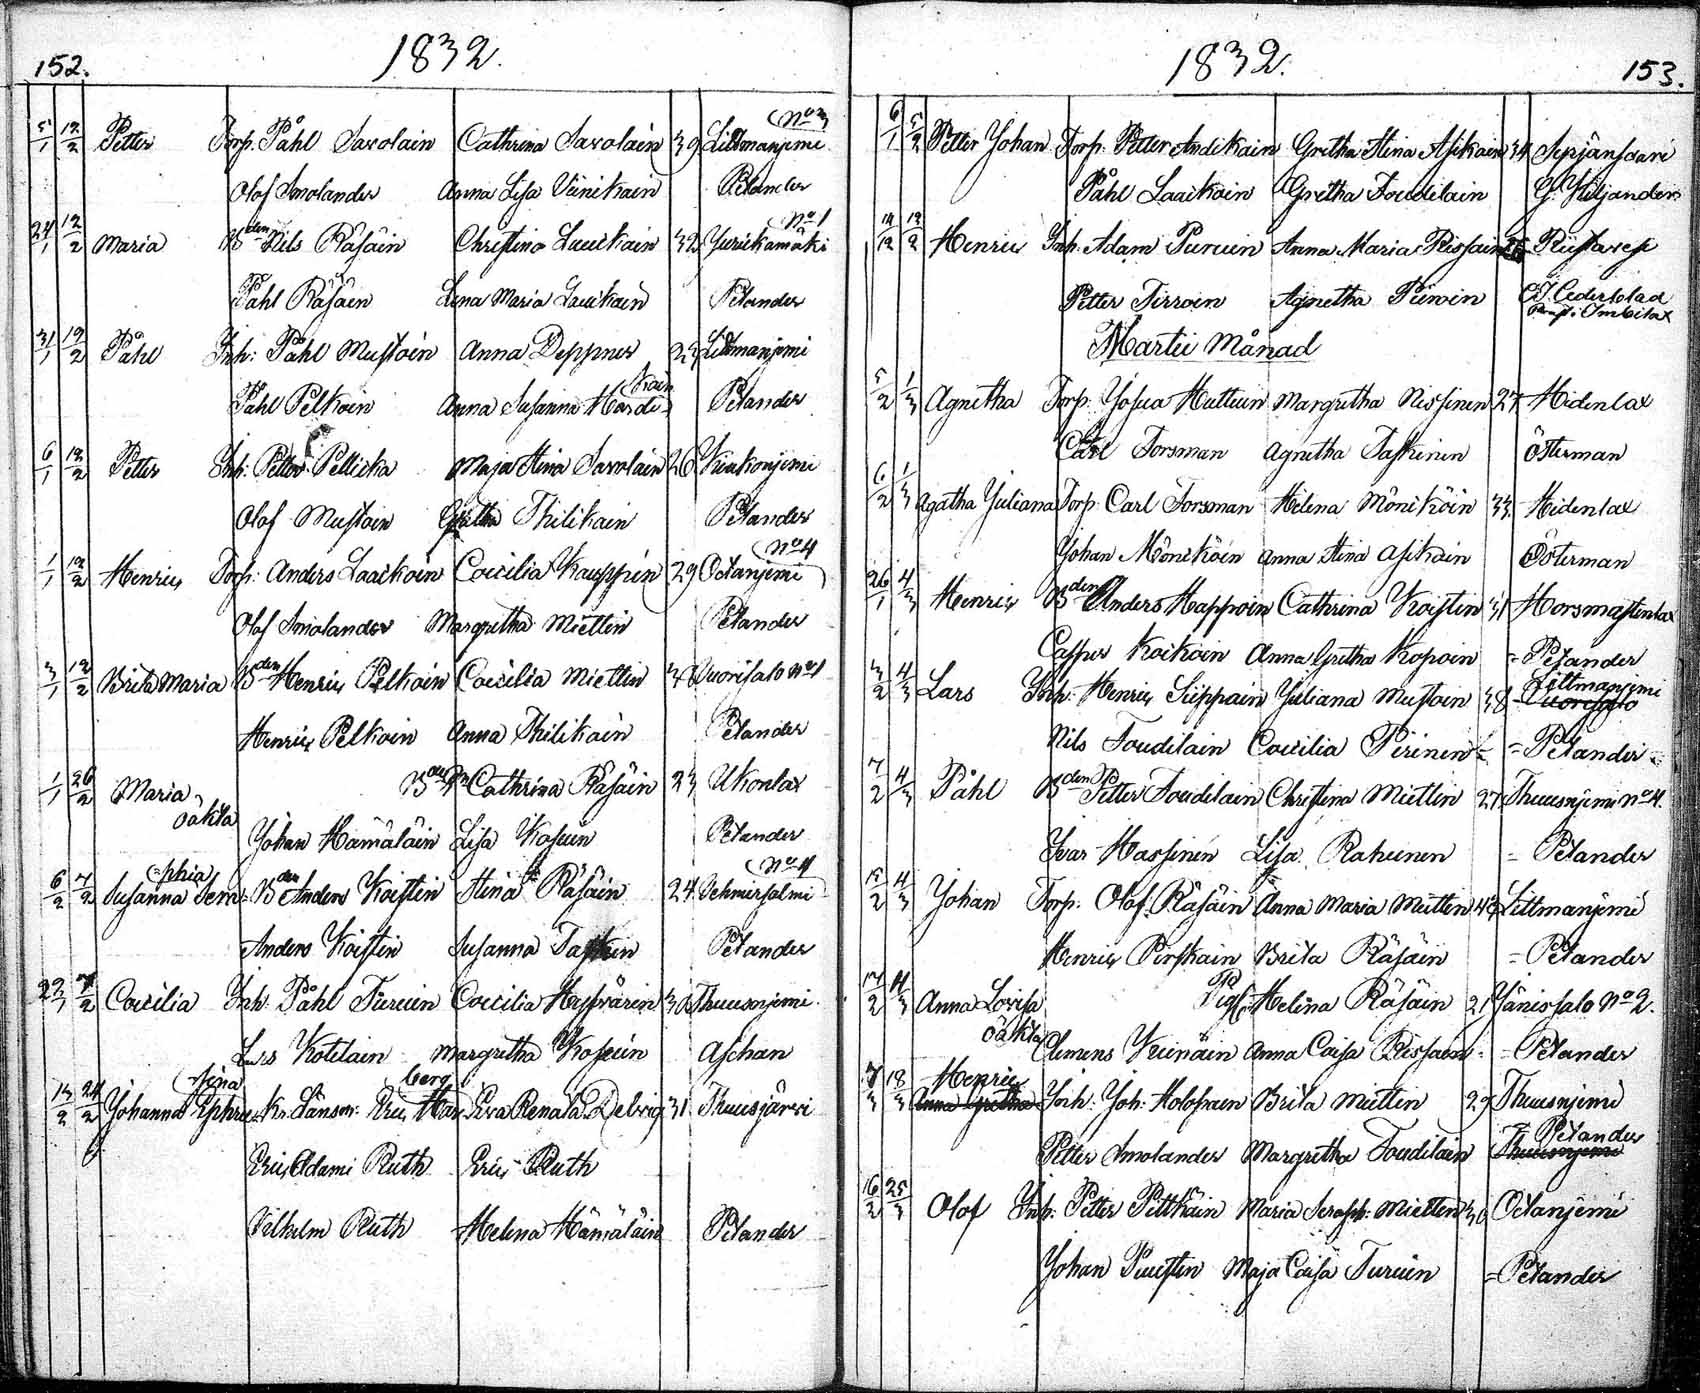 152.
1832.
No 3
5/1 12/2 Petter Torp. Påhl Savolain Cathrina Savolain 39 Littmanjemi
Olof Smolander Anna Lisa Vänikain Pelander
No 1
24/1 12/2 Maria Bden Nils Räsäin Christina Laackain 32 Jurickamäki
Påhl Räsäin Lena Maria Laackain Pelander
31/1 12/2 Påhl Inh: Påhl Mustoin Anna Deppner 23 Littmanjemi
Påhl Pelkoin Anna Susanna Hardikain Pelander
6/1 12/2 Petter Inh: Petter Pellicka Maja Stina Savolain 26 Kiukonjemi
Olof Mustoin Gretha Thilikain Pelander
No 4
1/1 12/2 Henric Torp: Anders Laackoin Coecilia Kauppin 29 Oetanjemi
Olof Smolander Margretha Miettin Pelander
3/1 12/2 Brita Maria Bden Henric Pelkoin Coecilia Miettin 38 Vuorisalo No 1
Henric Pelkoin Anna Thilikain Pelander
1/1 26/2 Maria Cathrina Räsäin 23 Ukonlax
oäkta
Johan Hämäläin Lisa Kosuin Pelander
phia No 4
6/2 7/2 Susanna Sem= Bden Anders Koistin Stina Räsäin 24 Vehmersalmi
Anders Koistin Susanna Taskin Pelander
22/1 7/2 Coecilia Inh. Påhl Turuin Coecilia Hyppärin 30 Thuusnjemi
Lars Kotilain Margretha Kosuin Aschan
sina berg
13/2 24/2 Johanna Ephro= Kr. Länsm: Eric Har= Eva Renata Delvig 31 Thuusjärvi
Eric Adami Ruth Eric Ruth
Vilhelm Ruth Helena Hämäläin Pelander
1832.
153.
6/1 5/2 Petter Johan Torp: Petter Andikain Gretha Stina Asikain 34 Seppänsaari
Påhl Laackain Gretha Toudilain G. Kiljander
14/12 12/2 Henric Inh. Adam Puruin Anna Maria Rissain Riistavesi
Petter Tirroin Agnetha Piiroin C.J. Cederblad
Martii Månad
5/2 1/3 Agnetha Torp: Josua Huttuin Margretha Nissinen 27 Hidenlax
Carl Forsman Agnetha Taskinen Österman
6/2 1/3 Agatha Juliana Torp Carl Forsman Helena Möniköin 33 Hidenlax
Johan Mönicköin Anna Stina Asikain Österman
26/1 4/3 Henric Bden Anders Happoin Cathrina Koistin 31 Horsmastenlax
Casper Koikoin Anna Gretha Kopoin = Pelander
Littmanjemi
3/2 4/3 Lars Inh: Henric Süppain Juliana Mustoin 38 Vuorisalo
Nils Toudilain Coecilia Pirinen = Pelander
7/2 4/3 Påhl Bden Petter Toudilain Christina Miettin 27 Thuusnjemi No 4.
Ivar Hassinen Lisa Rahunen = Pelander
15/2 4/3 Johan Torp: Olof Räsäin Anna Maria Miettin 43 Littmanjemi
Henric Pirskain Brita Räsäin = Pelander
17/2 11/3 Anna Lovisa Pig. Helena Räsäin 21 Jänissalo No 2.
oäkta
Clemens Keinäin Anna Caisa Rissain = Pelander
Henric
7/3 18/3 Anna Gretha Inh: Joh: Holopain Brita Miettin 29 Thuusnjemi
= Pelander
Petter Smolander Margretha Toudilain Thuusnjemi
16/2 25/3 Olof Inh: Petter Pittkäin Maria Seraph: Miettin 30 Oetanjemi
Johan Puustin Maja Caisa Turuin = Pelander